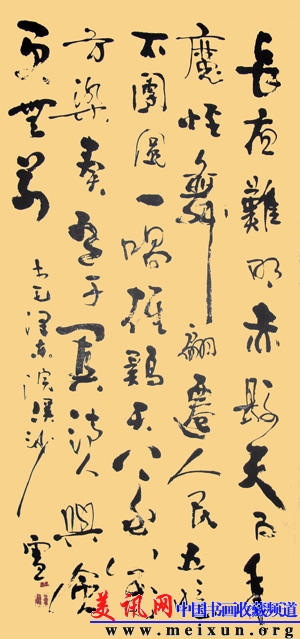 長夜難明赤縣天百年
魔怪舞翩遷人民五億
不團圓一唱雄鷄天下白萬
方樂奏有于闐詩人興會
更無前
书毛澤东浣溪沙
美讯网 中国书画收藏频道
www.meixun.org